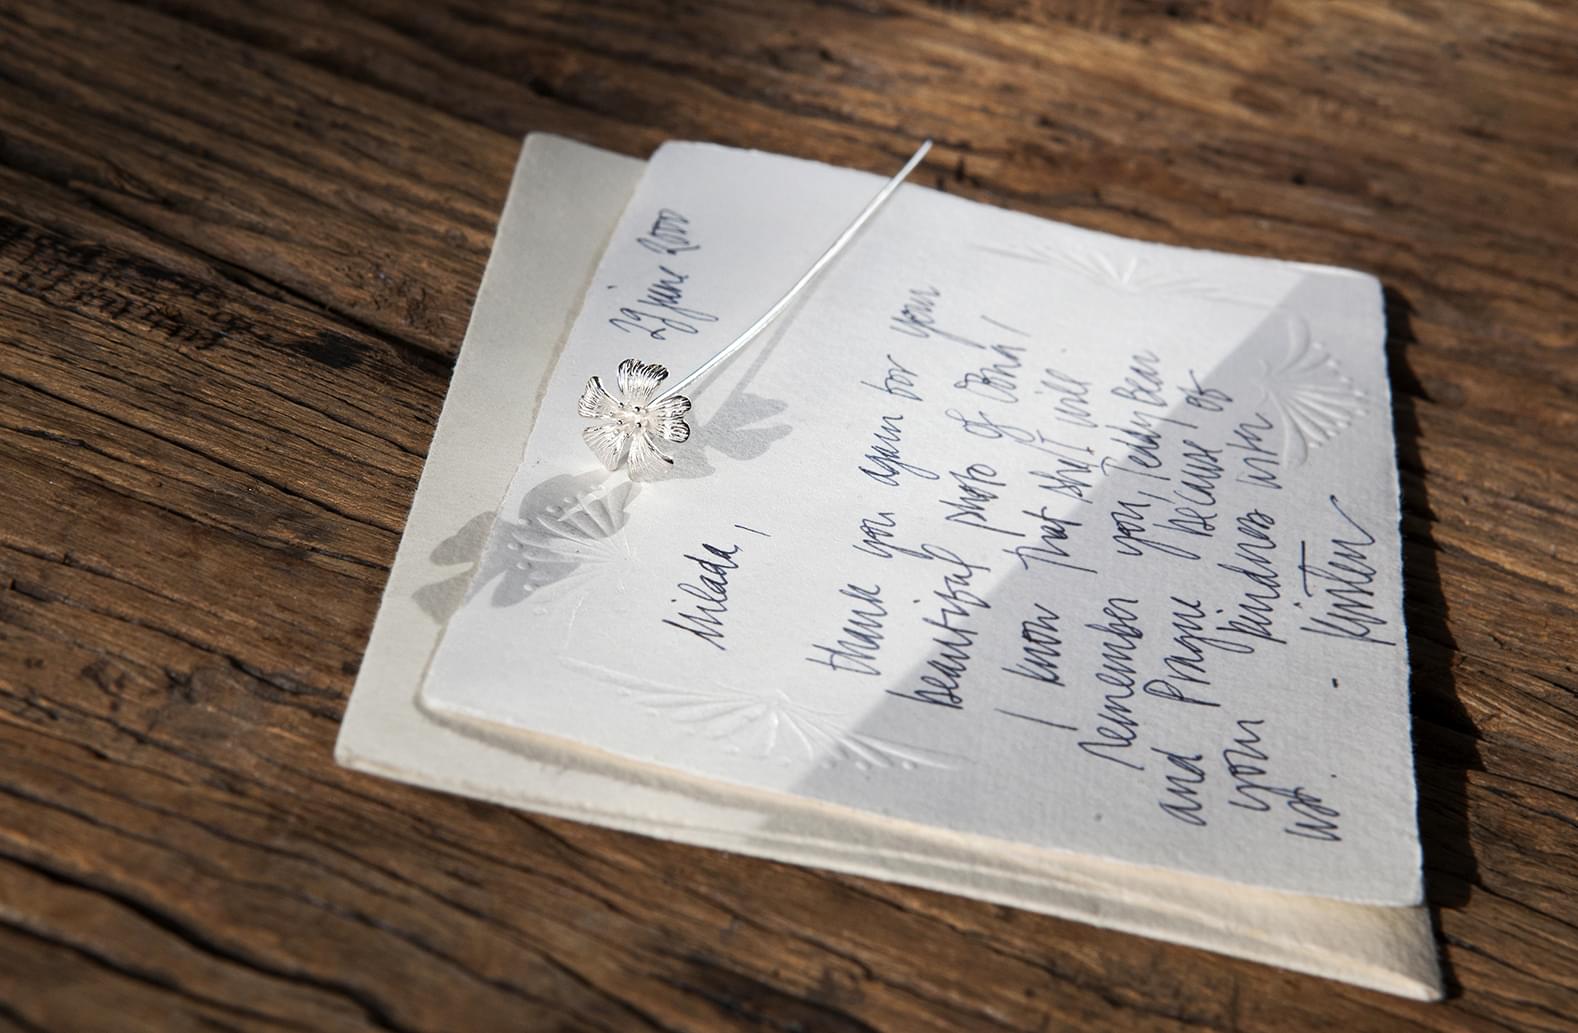 29 june 2000
Milada,
thank you again for your
beautiful photo of Oona!
I know that she I will
remember you, Teddy Bear
and Prague because of
your kindness with
us.
- Kirsten